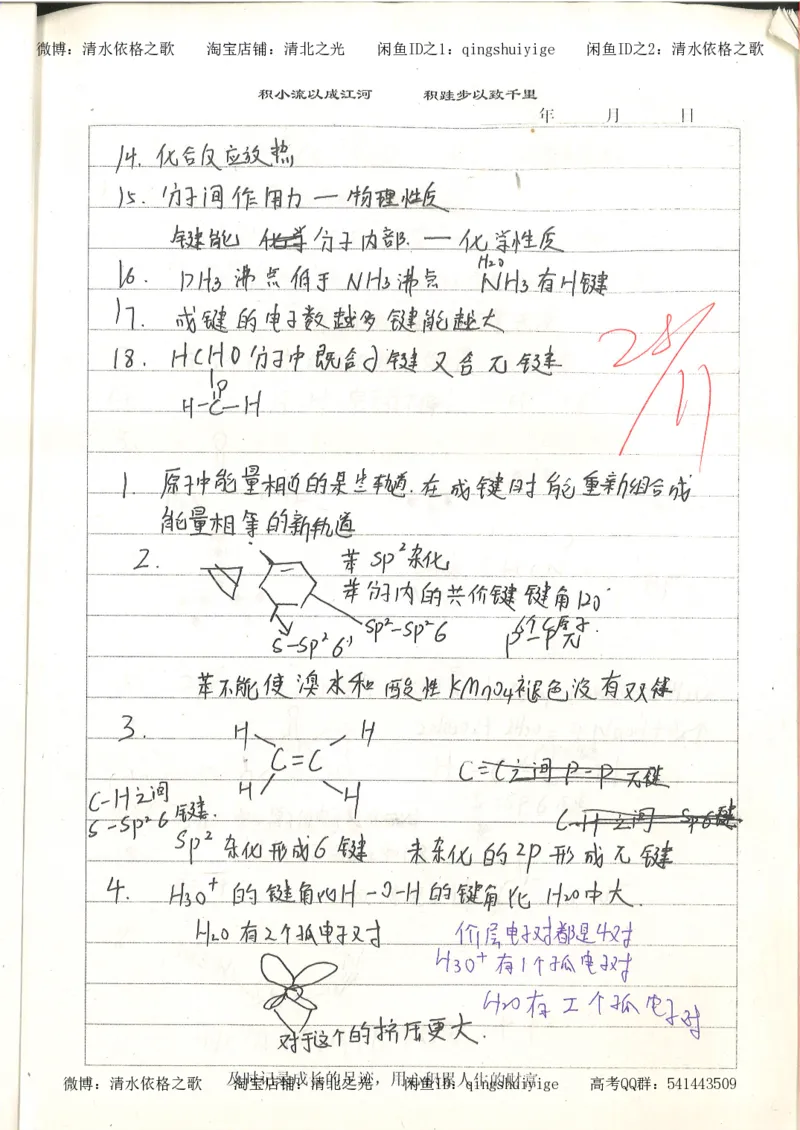 微博：清水依格之歌 淘宝店铺：清北之光 闲鱼ID之1：qingshuiyige 闲鱼ID之2：清水依格之歌
积小流以成江河 积跬步以致千里
年 月 日
14. 化合反应放热
15. 分子间作用力 — 物理性质
键能 分子内部 — 化学性质
H2O
16. PH3沸点低于NH3沸点 NH3有H键
17. 成键的电子数越多键能越大
18. HCHO分子中既含σ键又含π键
O
H-C-H
28/11
1. 原子中能量相近的某些轨道.在成键时能重新组合成
能量相等的新轨道
2. 苯sp²杂化
苯分子内的共价键键角120°
S-Sp²σ sp²-sp²σ
P-Pπ
苯不能使溴水和酸性KMnO4褪色没有双键
3. H H
C=C
H H
C=C之间P-Pπ键
C-H之间
S-Sp²σ键.
C-H之间 Spσ键
Sp²杂化形成σ键 未杂化的2p形成π键
4. H3O⁺的键角H-O-H的键角比H2O中大.
H2O有2个孤电子对 价层电子对都是4对
H3O⁺有1个孤电子对
H2O有2个孤电子对
对于这个的挤压更大.
及时记录成长的足迹，用心积累人生的财富
微博：清水依格之歌 淘宝店铺：清北之光 闲鱼ID：qingshuiyige 高考QQ群：541443509